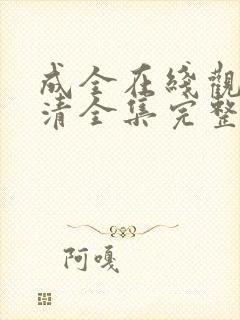 成全在綫觀
清全集完整
阿嘎